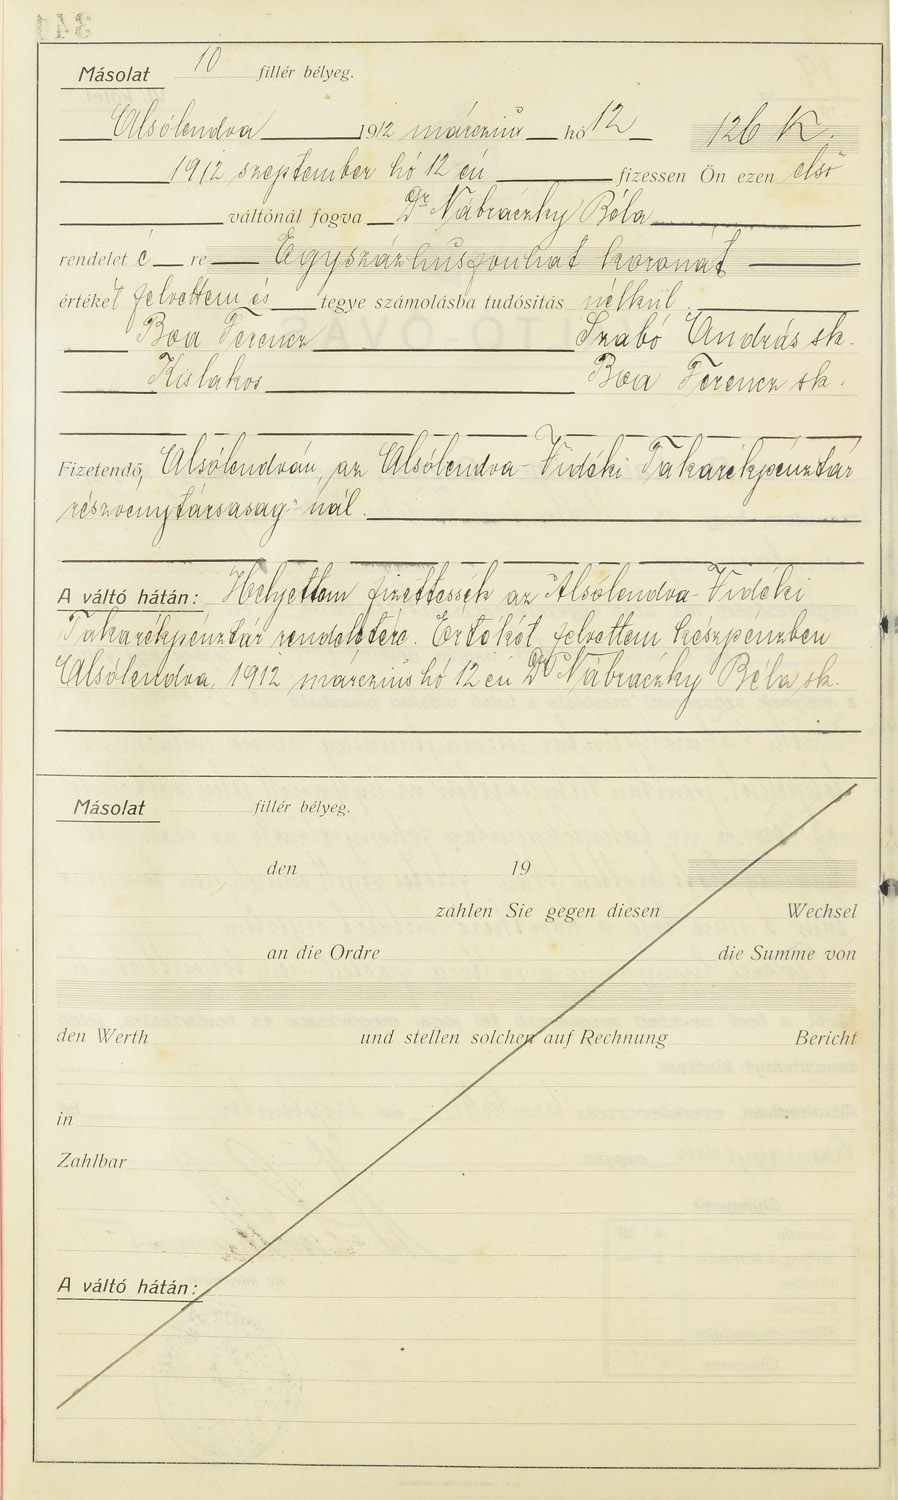 Másolat 10 fillér bélyeg.
Alsólendva 1912 márczius hó 12 126 K.
1912 szeptember hó 12 én fizessen Ön ezen első
váltónál fogva Dr Nábráczky Béla
rendelet é re Egyszázhuszonhat koronát
értékét felvettem és tegye számolásba tudósitás nélkül
Boa Ferencz Szabó András sk.
Kislakos Boa Ferencz sk.
Fizetendő, Alsólendván, az Alsólendva-Vidéki Takarékpénztár
részvénytársaság-nál.
A váltó hátán: Helyettem fizettessék az Alsólendva-Vidéki
Takarékpénztár rendeletére. Értékét felvettem készpénzben
Alsólendva, 1912 márczius hó 12 én Dr Nábráczky Béla sk.
Másolat fillér bélyeg.
den 19
zahlen Sie gegen diesen Wechsel
an die Ordre die Summe von
den Werth und stellen solchen auf Rechnung Bericht
in
Zahlbar
A váltó hátán: